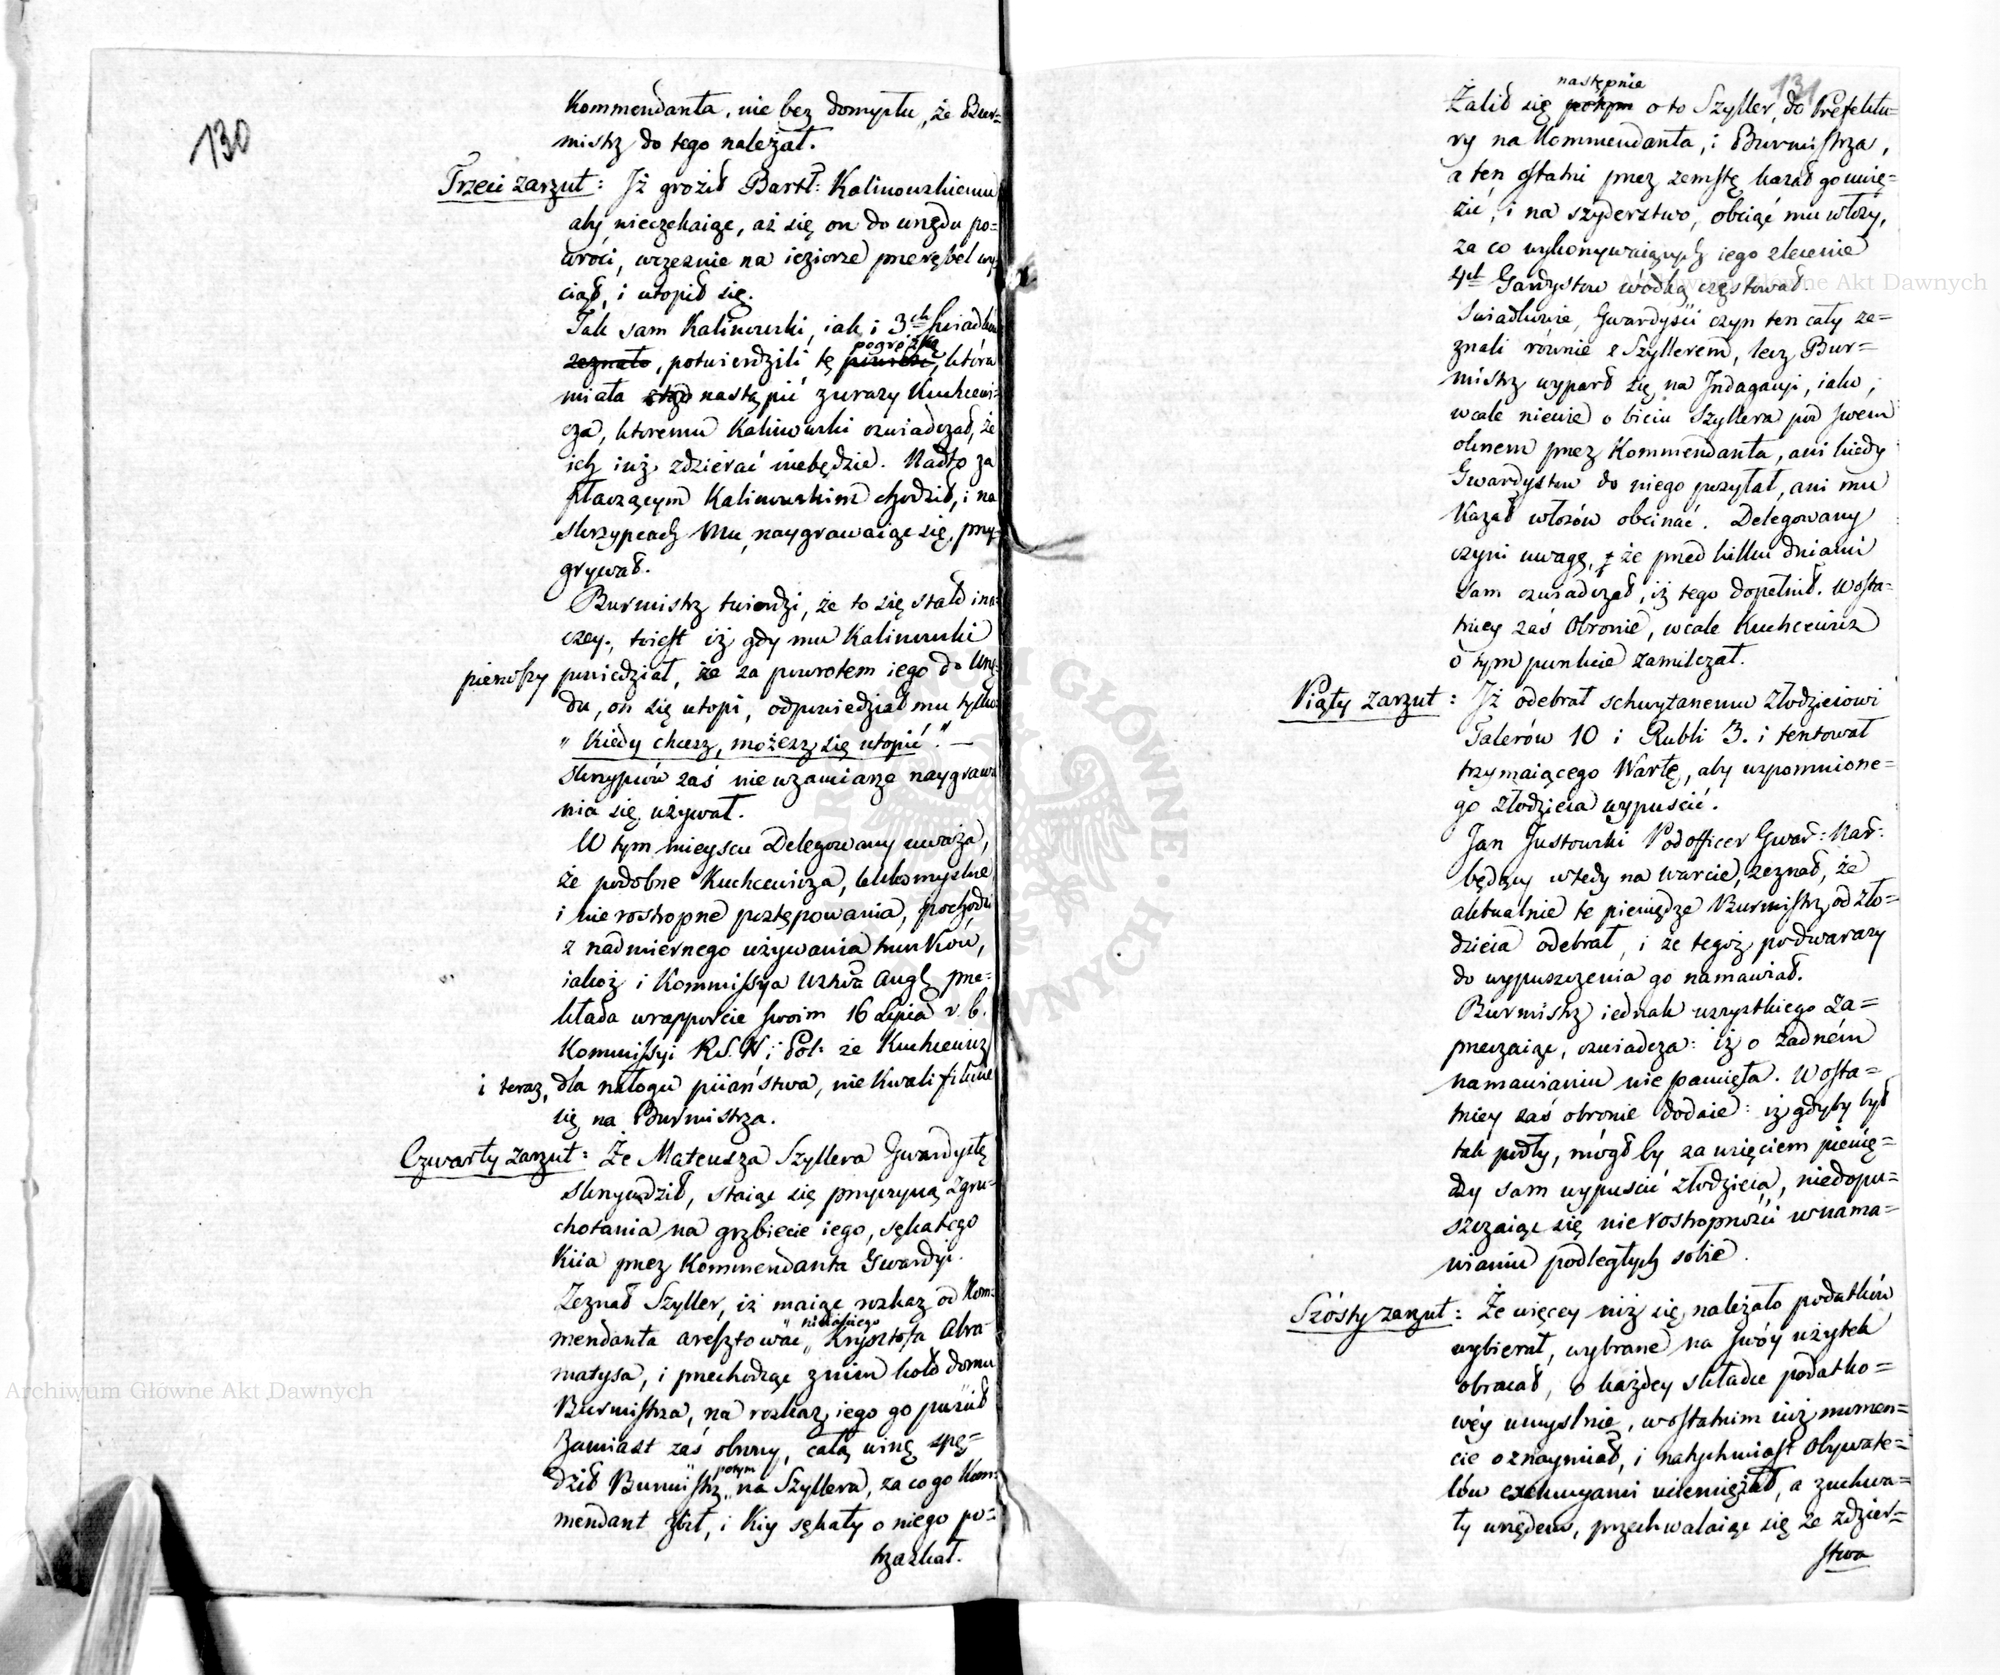 130
Kommendanta, nie bez domysłu, że Bur=
mistrz do tego należał.
Trzeci zarzut: Jż groził Bartł: Kalinowskiemu
aby nieczekaiąc, aż się on do urzędu po=
wróci, wcześnie na ieziorze przerębel wy
ciął, i utopił się.
Tak sam Kalinowski, iak i 3ch świadków
zeznało, potwierdzili tę pogróżkę, która
miała nastąpić z urazy Kuchcewi=
cza, któremu Kalinowski oświadczał, że
ich iuż zdzierać niebędzie. Nadto za
płaczącym Kalinowskim chodził, i na
skrzypcach Mu, naygrawaiąc się, przy=
grywał.
Burmistrz twierdzi, że to się stało ina=
czey, toiest iż gdy mu Kalinowski
pierwszy powiedział, że za powrotem iego do Urzę=
du, on się utopi, odpowiedział mu tylko
„Kiedy chcesz, możesz się utopić." —
Skrzypców zaś nie wzamiarze naygrawa
nia się, używał.
W tym mieyscu Delegowany uważa,
że podobne Kuchcewicza, lekkomyślne
i nierostropne postępowania, pochodzi
z nadmiernego używania trunków,
iakoż i Kommissya Wztwa Aug: prze=
kłada wrapporcie swoim 16 Lipca r. b.
Kommissyi R.S.W. i Pol: że Kuchcewicz
i teraz, dla nałogu piiaństwa, nie kwalifikuie
się na Burmistrza.
Czwarty zarzut: Że Mateusza Szyllera Gwardystę
skrzywdził, staiąc się przyczyną zgru=
chotania na grzbiecie iego, sękatego
Kiia przez Kommendanta Gwardyi.
Zeznał Szyller, iż maiąc rozkaz od Kom=
mendanta aresztować niejakiego Krysztofa Abra=
matysa, i przechodząc znim koło domu
Burmistrza, na rozkaz iego go puścił
Zamiast zaś obrony, całą winę spę=
dził Burmistrz potym na Szyllera, za co go Kom=
mendant zbił, i Kiy sękaty o niego po=
trzaskał.
131
Żalił się potym następnie o to Szyller, do Prefektu=
ry na Kommendanta, i Burmistrza,
a ten ostatni przez zemstę kazał go uwię=
zić, i na szyderstwo, obciąć mu włosy,
za co wykonywaiących iego zlecenie
4ch Gwardystów wódką częstował.
Świadkowie, Gwardyści czyn ten cały ze=
znali równie z Szyllerem, lecz Bur=
mistrz wyparł się na Jndagacyi, iako,
wcale niewie o biciu Szyllera pod swem
oknem przez Kommendanta, ani kiedy
Gwardystów do niego posyłał, ani mu
Kazał włosów obcinać. Delegowany
czyni uwagę, że przed kilku dniami
sam oświadczał, iż tego dopełnił. W osta=
tniey zaś Obronie, wcale Kuchcewicz
o tym punkcie zamilczał.
Piąty zarzut: Jż odebrał schwytanemu złodzieiowi
Talerów 10 i Rubli 3. i tentował
trzymaiącego Wartę, aby wspomnione=
go złodzieia wypuścić.
Jan Justowski Podofficer Gward: Nar:
będący wtedy na warcie, zeznał, że
aktualnie te pieniądze Burmistrz od zło=
dzieia odebrał, i że tegoż podwarazy
do wypuszczenia go namawiał.
Burmistrz iednak wszystkiego za=
przeczaiąc, oświadcza: iż o żadném
namawianiu nie pamięta. W osta=
tniey zaś obronie dodaie: iż gdyby był
tak podły, mógł by za wzięciem pienię=
dzy sam wypuścić złodzieia, niedopu=
szczaiąc się nierostropności w nama=
wianiu podległych sobie.
Szósty zarzut: Że więcey niż się należało podatków
wybierał, wybrane na swóy użytek
obracał, o każdey składce podatko=
wéy umyślnie, w ostatnim iuż momen=
cie oznaymiał, i natychmiast Obywate=
lów exekucyami uciemiężał, a zuchwa=
ły urzędem, przechwalaiąc się ze zdzier=
stwa
Archiwum Główne Akt Dawnych
Archiwum Główne Akt Dawnych